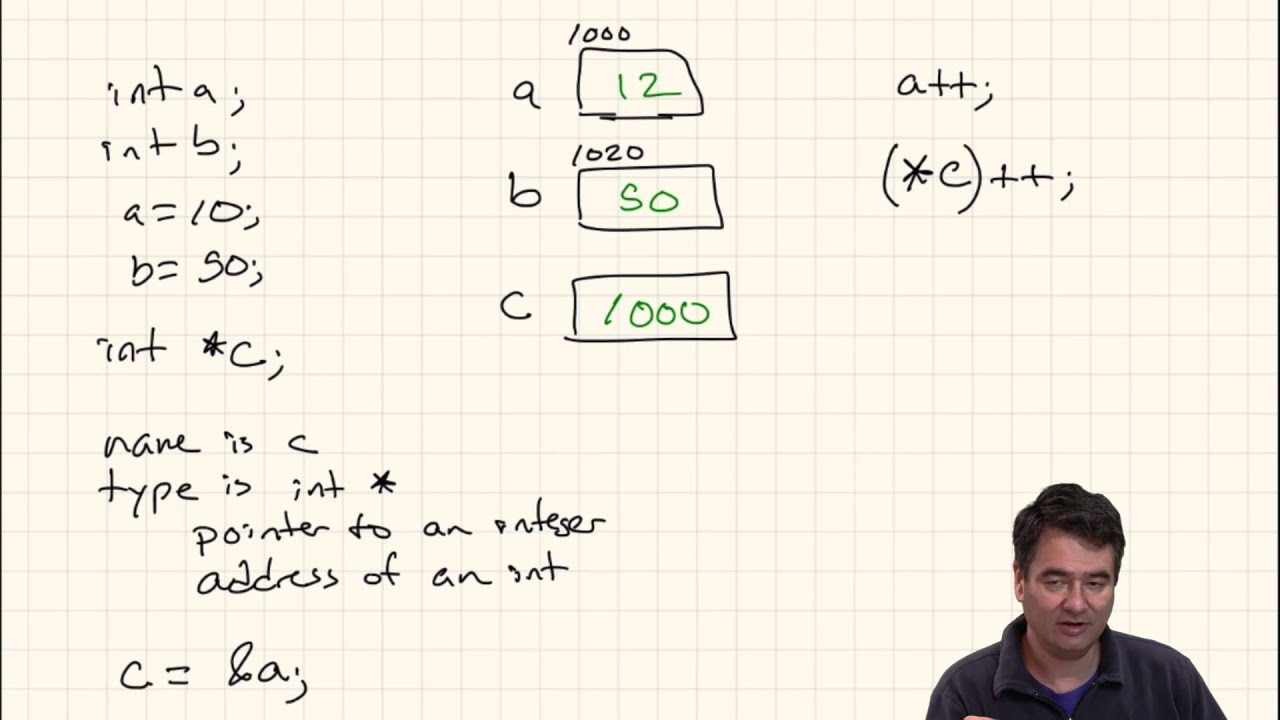 int a;
int b;
a = 10;
b = 50;
int *c;
name is c
type is int *
pointer to an integer
address of an int
c = &a;
1000
a 12
1020
b 50
c 1000
a++;
(*c)++;